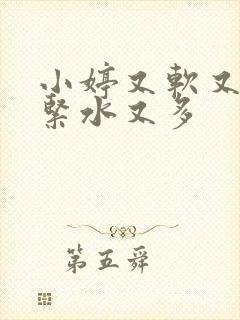 小婷又軟又
緊水又多
第五舜